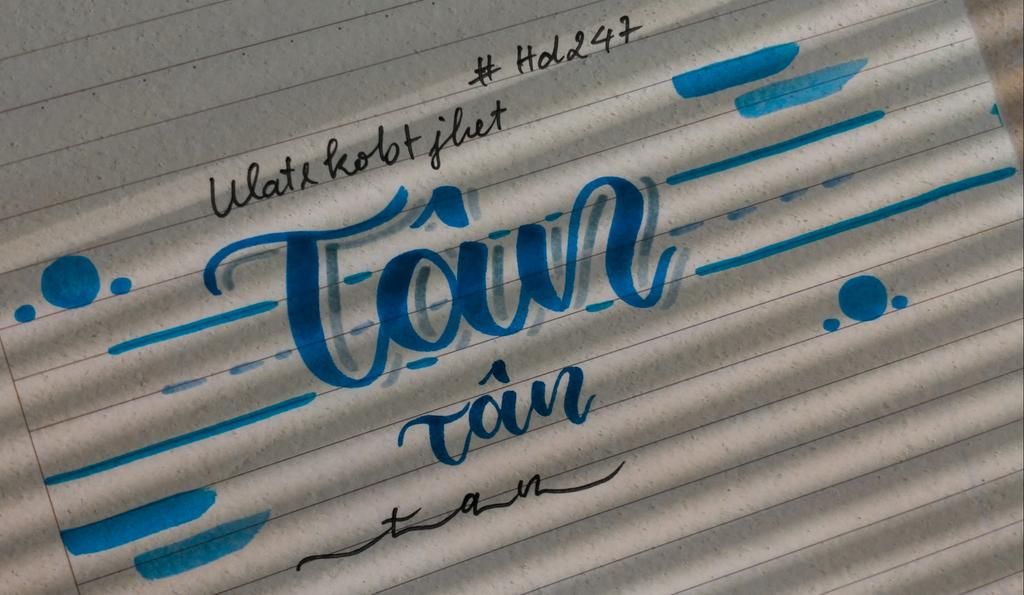 # Hd247
Ulatekobt jhet
Tân
Tân
tan